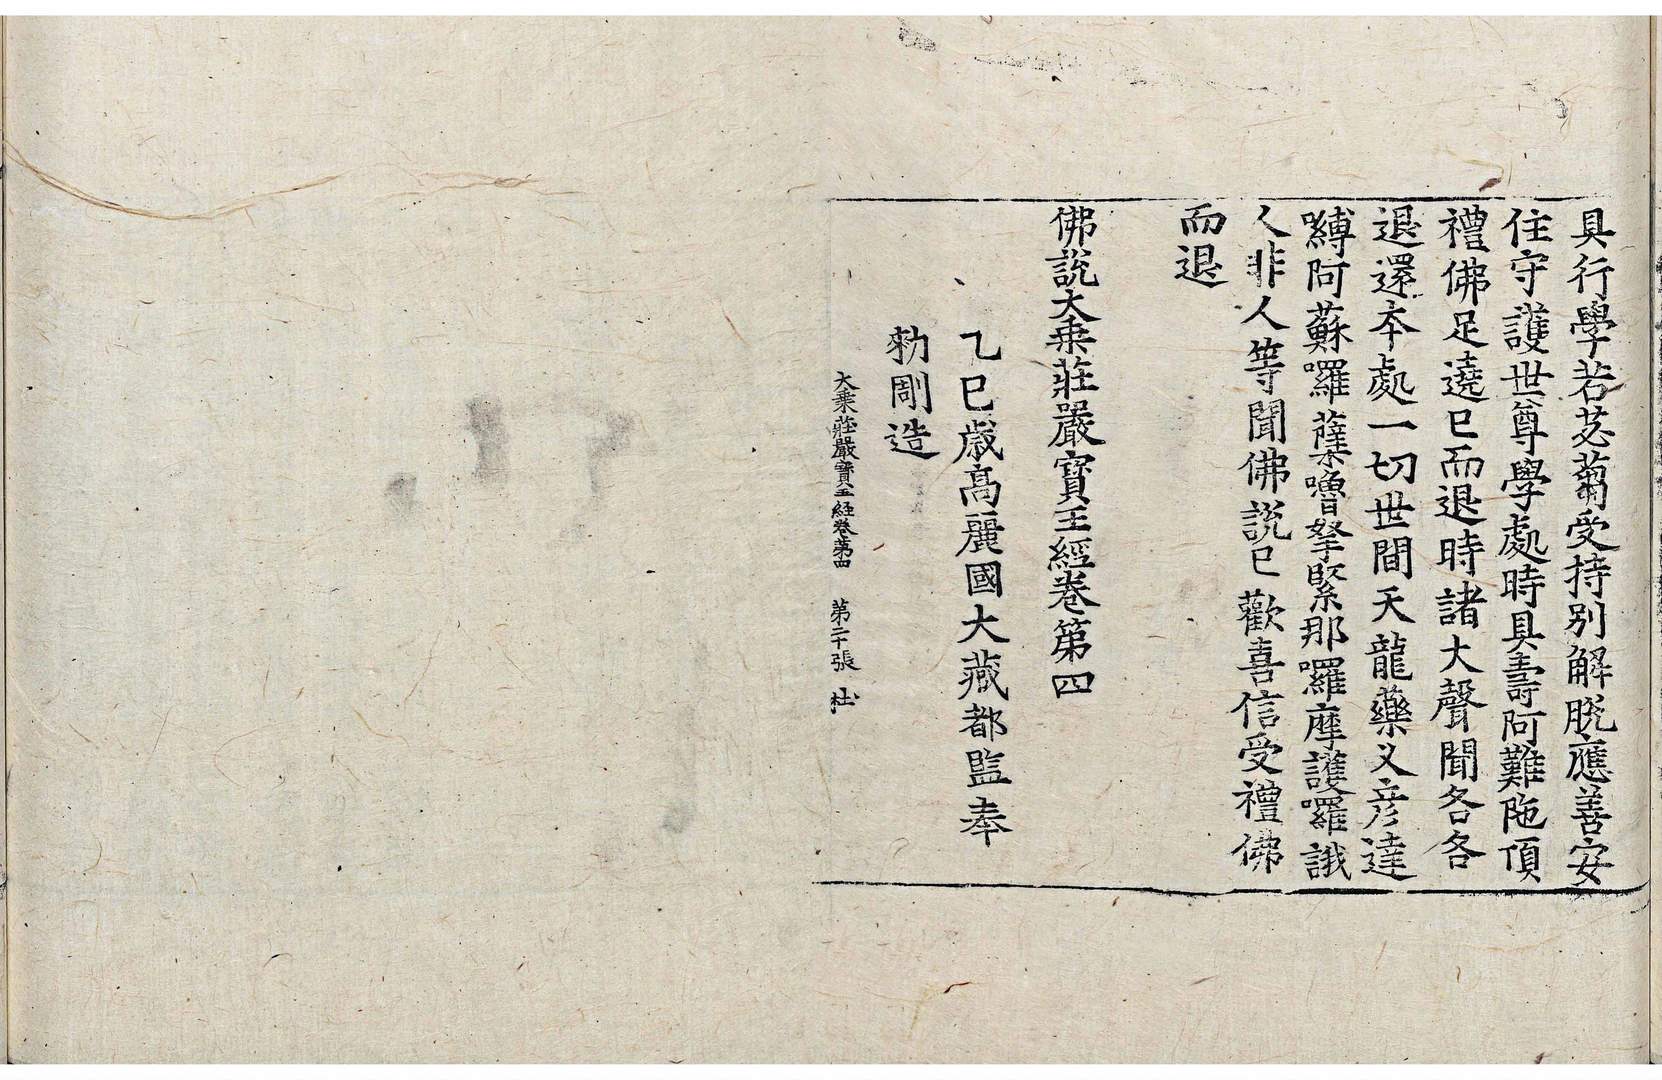 具行學若苾蒭受持別解脫應善安
住守護世尊學處時具壽阿難陁頂
禮佛足遶已而退時諸大聲聞各各
退還本處一切世間天龍藥叉彦達
嚩阿蘇囉蘖嚕拏緊那囉摩護囉誐
人非人等聞佛說已歡喜信受禮佛
而退
佛說大乗莊嚴寶王經卷第四
乙巳歲高麗國大藏都監奉
勑剛造
大乗莊嚴寶王經卷第四 第二十張 杜